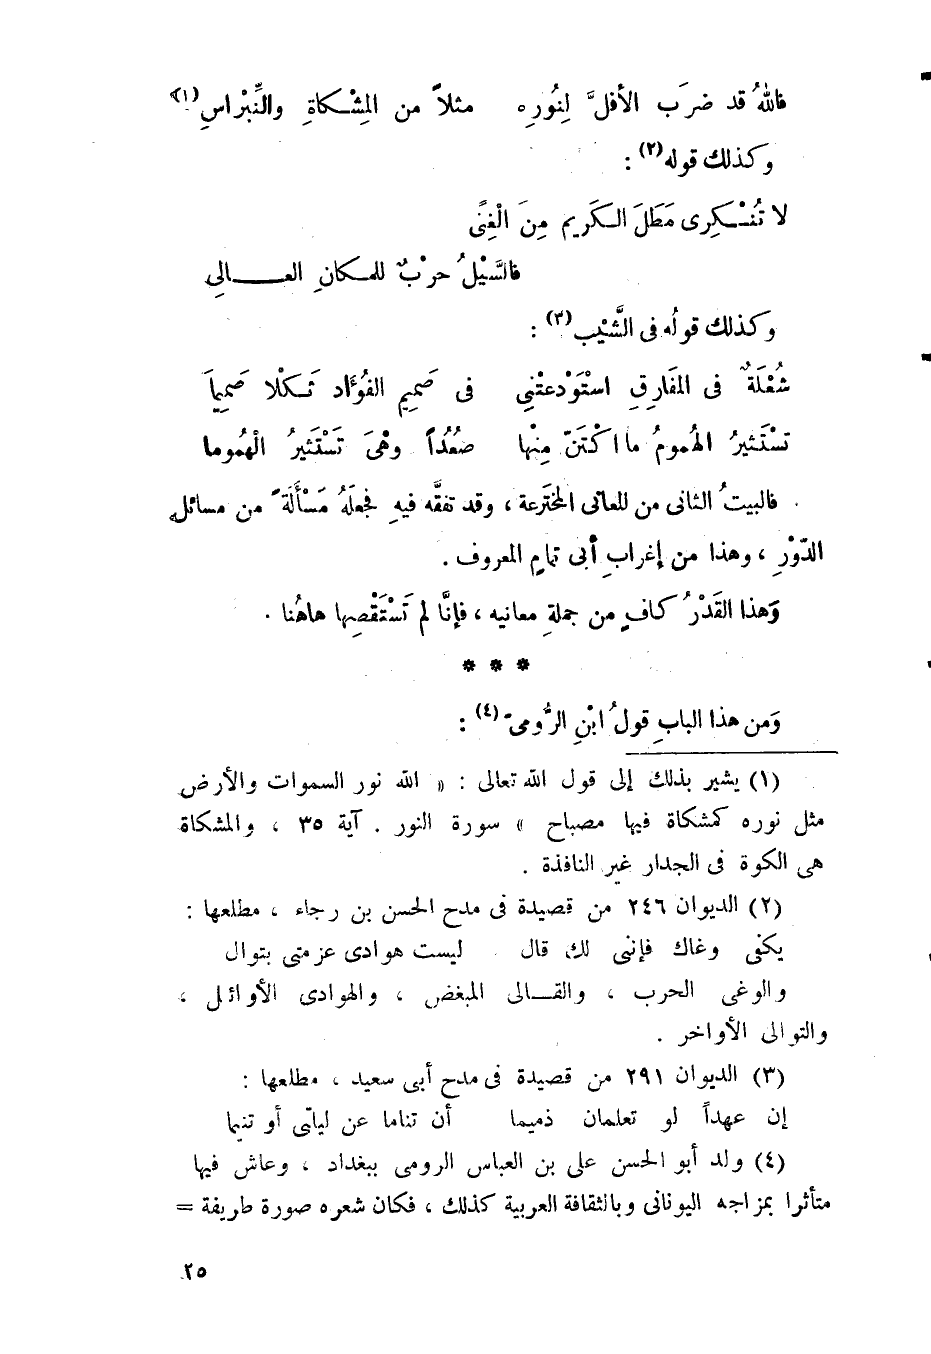 فاللهُ قد ضرَب الأقلَّ لِنُورِه مثلاً من المِشْكاةِ والنِّبْراسِ(١)
وكذلك قوله(٢) :
لا تُنْكِرى عَطَلَ الكَريم مِنَ الْغِنَى
فالسَّيْلُ حرْبٌ للمكانِ العالى
وكذلك قولُه فى الشَّيْب(٣) :
شُعْلَةٌ فى المَفَارِقِ اسْتَوْدعتْنِى فى صَمِيمِ الفُؤَادِ ثَكْلا صَمِيما
تَسْتَثيرُ الهُمومُ ما اكْتَنّ مِنْها صُعُداً وهْىَ تَسْتَثِيرُ الْهُموما
فالبيتُ الثانى من المعانى المخترَعة ، وقد تفقَّه فيهِ فجعلَهُ مَسْأَلَةً من مسائل
الدّوْرِ ، وهذا من إغرابِ أبى تمامٍ المعروف .
وَهذا القَدْرُ كافٍ من جملةِ معانيه ، فإنَّا لم نَسْتَقْصِها هاهُنا .
* * *
وَمن هذا البابِ قولُ ابْنِ الرُّومىّ(٤) :
(١) يشير بذلك إلى قول الله تعالى : « الله نور السموات والأرض
مثل نوره كمشكاة فيها مصباح » سورة النور . آية ٣٥ ، والمشكاة
هى الكوة فى الجدار غير النافذة .
(٢) الديوان ٢٤٦ من قصيدة فى مدح الحسن بن رجاء ، مطلعها :
يكفى وغاك فإننى لك قال ليست هوادى عزمتى بتوال
والوغى الحرب ، والقالى المبغض ، والهوادى الأوائل ،
والتوالى الأواخر .
(٣) الديوان ٢٩١ من قصيدة فى مدح أبى سعيد ، مطلعها :
إن عهداً لو تعلمان ذميما أن تناما عن ليلتى أو تنيما
(٤) ولد أبو الحسن على بن العباس الرومى ببغداد ، وعاش فيها
متأثرا بمزاجه اليونانى وبالثقافة العربية كذلك ، فكان شعره صورة طريفة =
٢٥